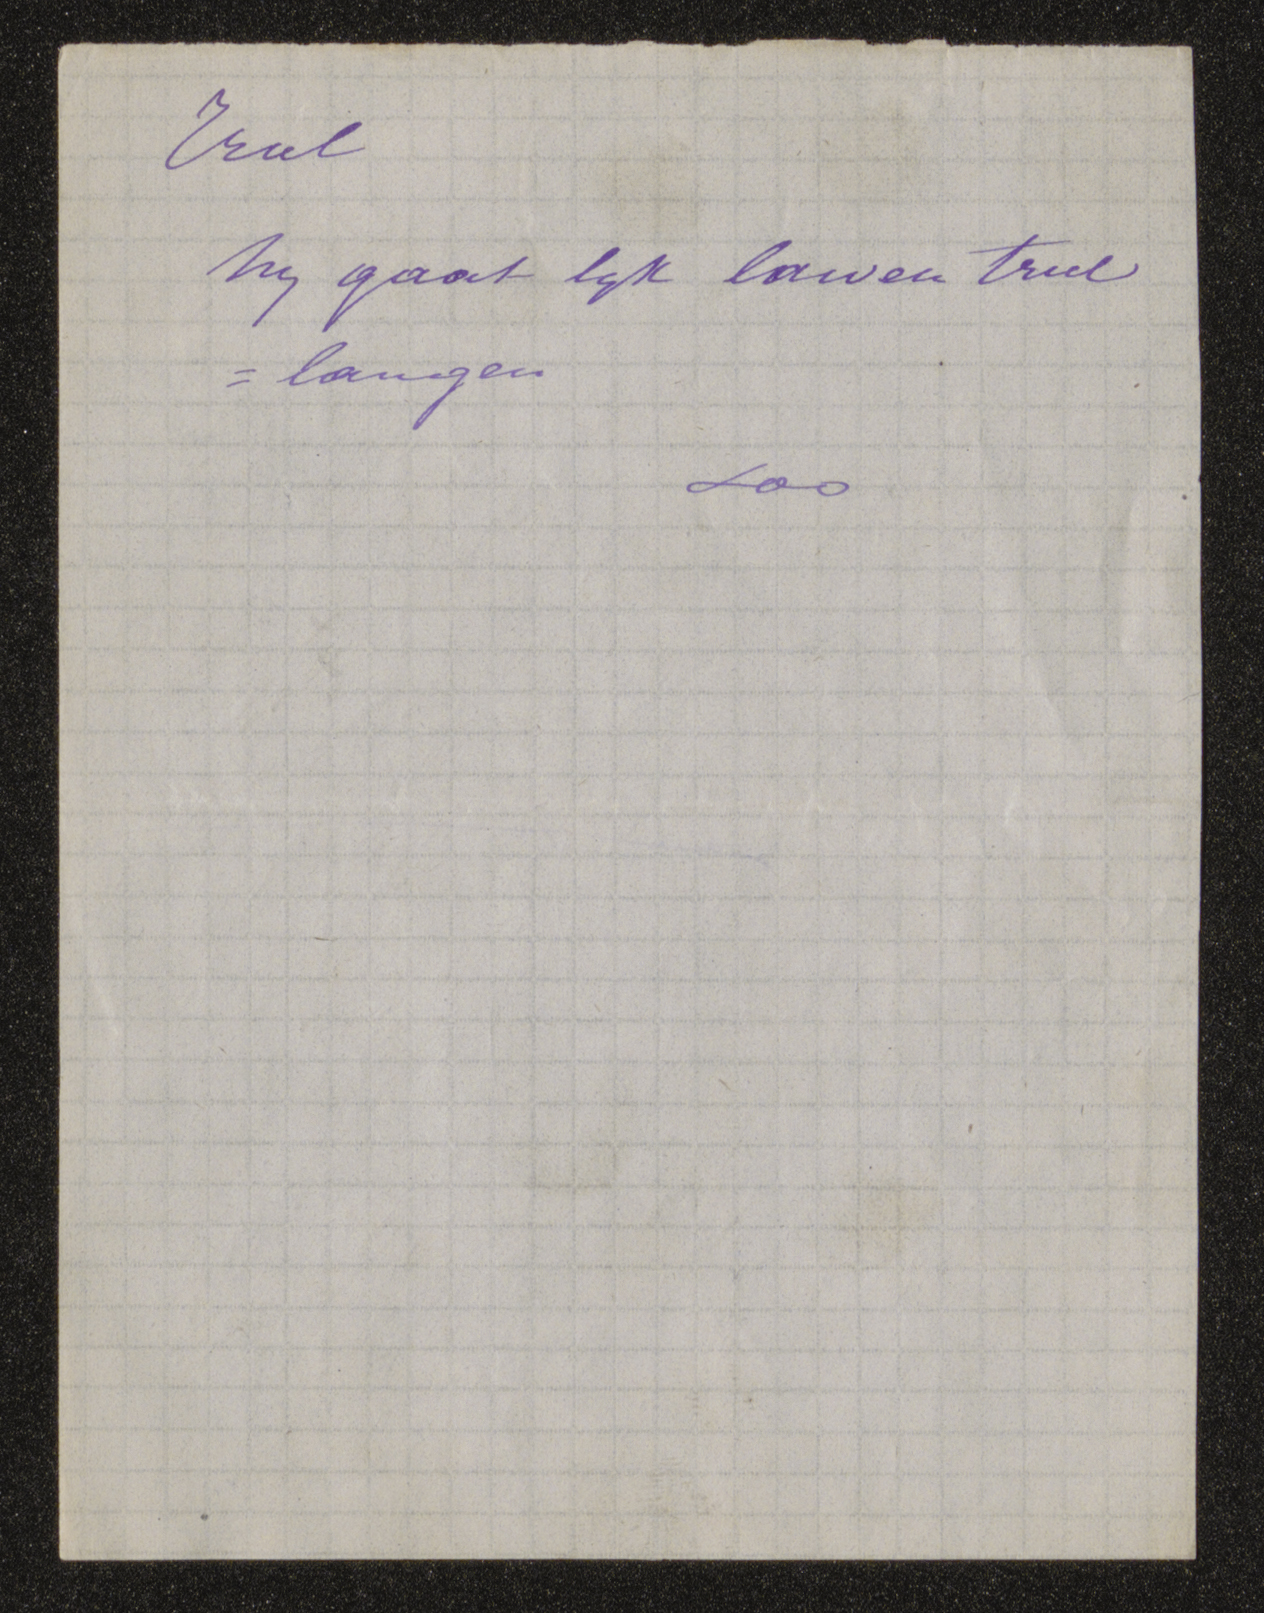 Trul
hy gaat lyk lawen trul
= langen
Loo